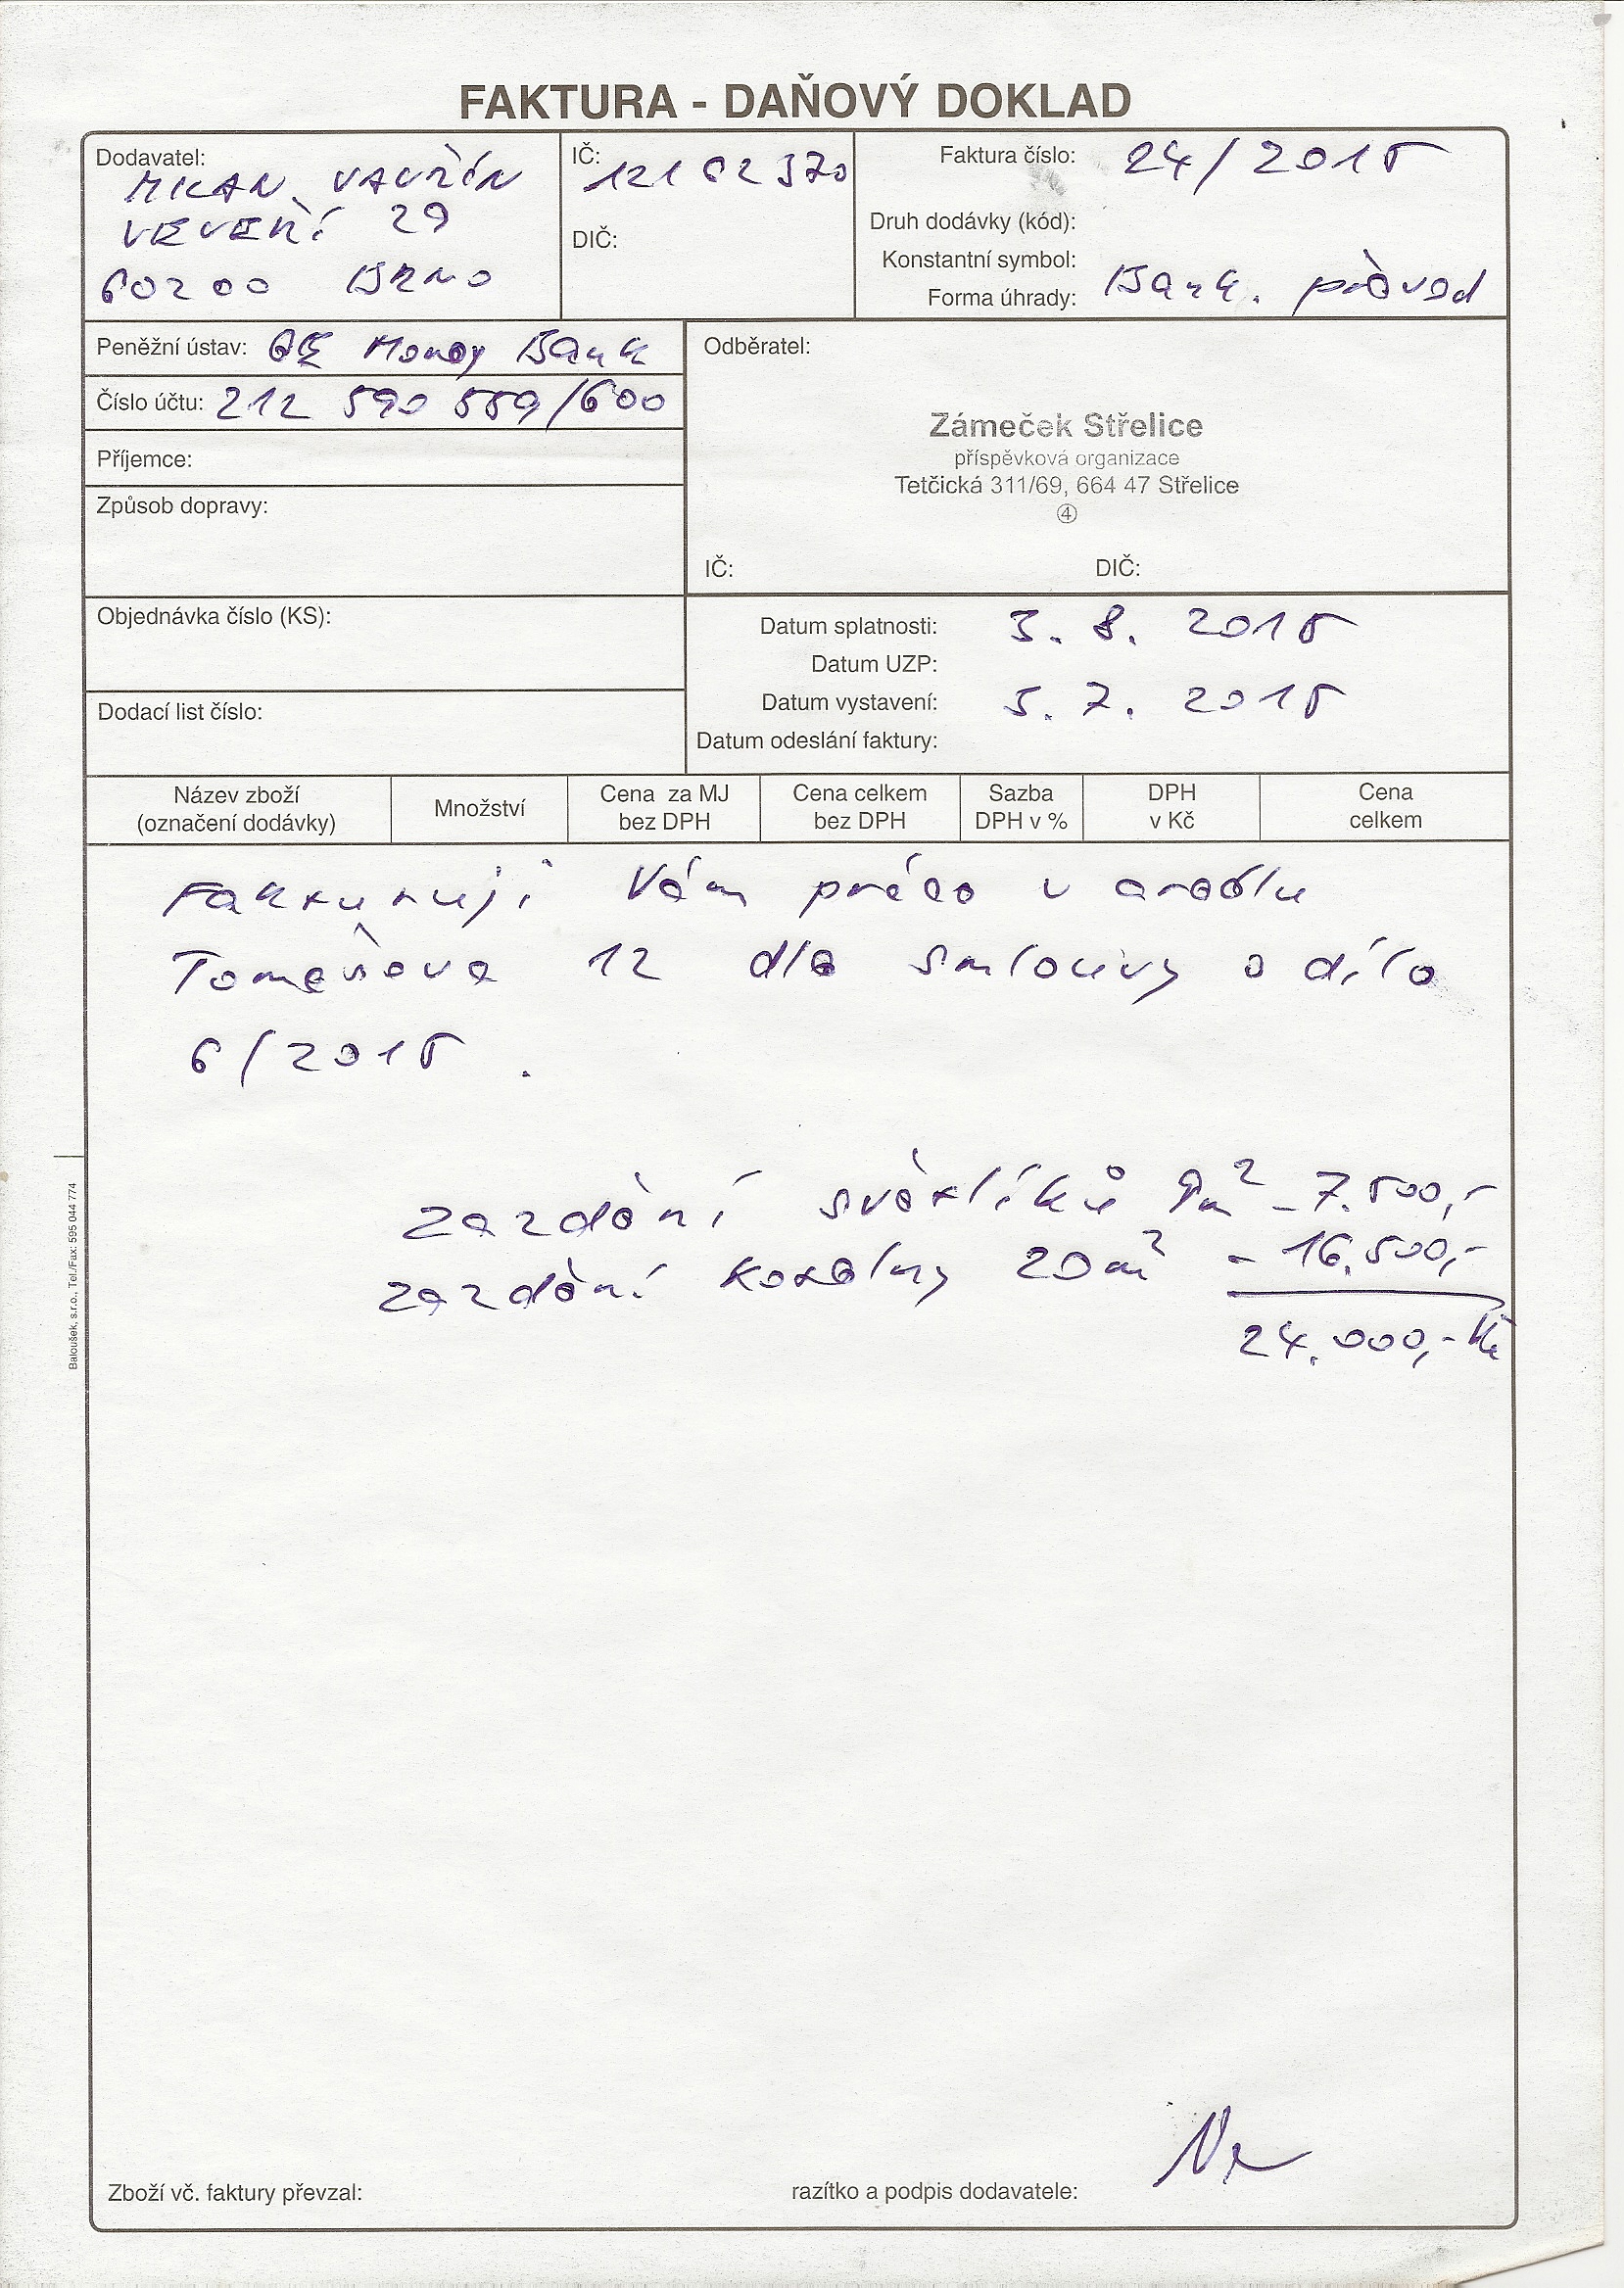 FAKTURA - DAŇOVÝ DOKLAD
Dodavatel:
MILAN VAVŘÍN
VEVEŘÍ 29
602 00 BRNO
IČ: 121 02 370
DIČ:
Faktura číslo: 24/2015
Druh dodávky (kód):
Konstantní symbol:
Forma úhrady: Bank. převod
Peněžní ústav: GE Money Bank
Číslo účtu: 212 590 559/600
Příjemce:
Způsob dopravy:
Objednávka číslo (KS):
Dodací list číslo:
Odběratel:
Zámeček Střelice
příspěvková organizace
Tetčická 311/69, 664 47 Střelice
④
IČ: DIČ:
Datum splatnosti: 3. 8. 2015
Datum UZP:
Datum vystavení: 3. 7. 2015
Datum odeslání faktury:
Název zboží
(označení dodávky)
Množství
Cena za MJ
bez DPH
Cena celkem
bez DPH
Sazba
DPH v %
DPH
v Kč
Cena
celkem
Fakturuji Vám práce v areálu
Tomešova 12 dle smlouvy o dílo
6/2015.
zazdění světlíků 9m² - 7.500,-
zazdění kotelny 20m² - 16.500,-
24.000,- Kč
Baloušek, s.r.o., Tel./Fax: 595 044 774
Zboží vč. faktury převzal:
razítko a podpis dodavatele: